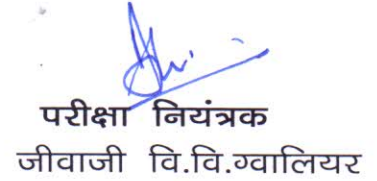 परीक्षा नियंत्रक
जीवाजी वि.वि.ग्वालियर